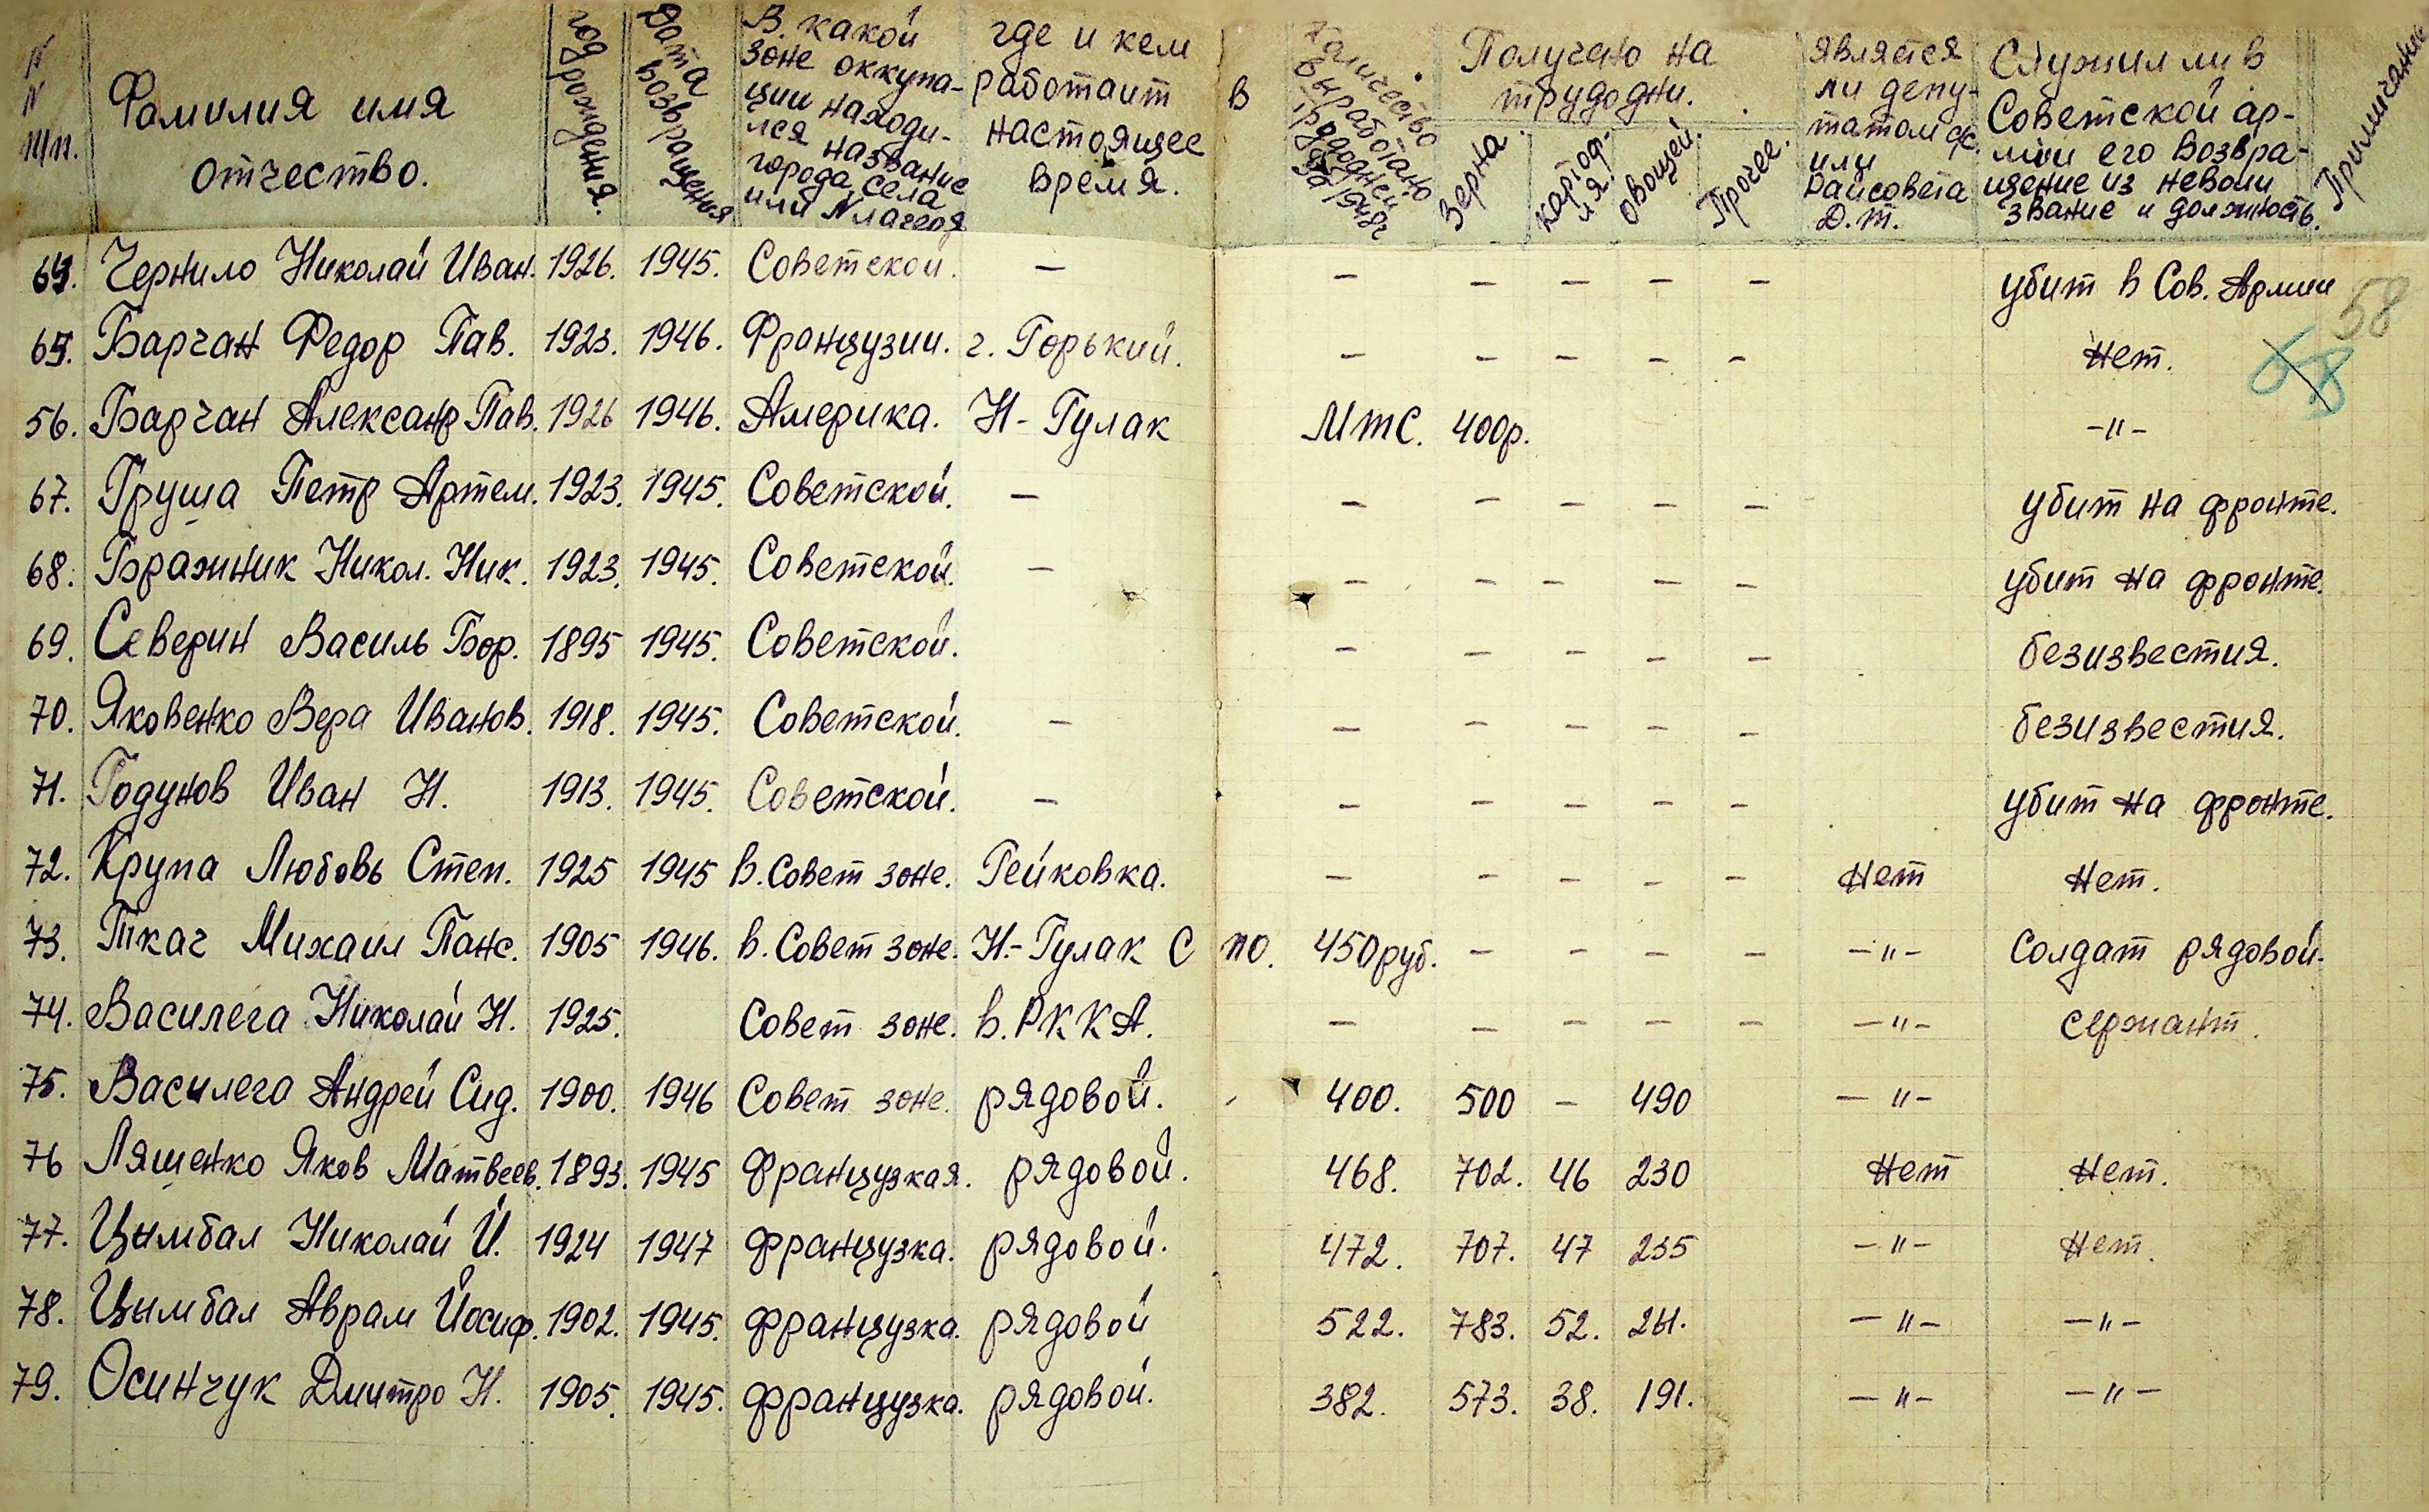 N
N
П/П.
Фамилия имя
отчество.
год рождения.
Дата
возвращения
В какой
зоне оккупа-
ции находи-
лся название
города, села
или N лагеря
где и кем
работает
настоящее
время.
в
Количество
выработано
трудодней
за 1948г
Получено на
трудодни.
Зерна.
картоф-
ля.
овощей.
Прочее.
является
ли депу-
татом с/с.
или
Райсовета
Д.т.
Служил ли в
Советской ар-
мии его возвра-
щение из неволи
звание и должность.
Примичание
64. Чернило Николай Иван. 1926. 1945. Советской. — — — — — — убит в Сов. Армии
58
65. Барчан Федор Пав. 1923. 1946. Французии. г. Горький. — — — — — Нет.
56. Барчан Александр Пав. 1926 1946. Америка. Н-Гулак МТС. 400р. -"-
67. Груша Петр Артем. 1923. 1945. Советской. — — — — — — убит на фронте.
68. Бражник Никол. Ник. 1923. 1945. Советской. — — — — — — убит на фронте.
69. Северин Василь Бор. 1895 1945. Советской. — — — — — безизвестия.
70. Яковенко Вера Иванов. 1918. 1945. Советской. — — — — — — безизвестия.
71. Годунов Иван Н. 1913. 1945. Советской. — — — — — — убит на фронте.
72. Крупа Любовь Степ. 1925 1945 в. Совет зоне. Гейковка. — — — — — Нет Нет.
73. Ткач Михаил Панс. 1905 1946. в. Совет зоне. Н.-Гулак С по. 450руб. — — — — -"- Солдат рядовой.
74. Василега Николай Н. 1925. Совет зоне. в. РККА. — — — — — -"- сержант.
75. Василега Андрей Сид. 1900. 1946 Совет зоне. рядовой. 400. 500 — 490 -"-
76 Ляшенко Яков Матвеев. 1893. 1945 Французкая. рядовой. 468. 702. 46 230 Нет Нет.
77. Цымбал Николай Й. 1924 1947 французка. рядовой. 472. 707. 47 235 -"- Нет.
78. Цымбал Аврам Йосиф. 1902. 1945. французка. рядовой 522. 783. 52. 261. -"- -"-
79. Осинчук Дмитро Н. 1905. 1945. французка. рядовой. 382. 573. 38. 191. -"- -"-